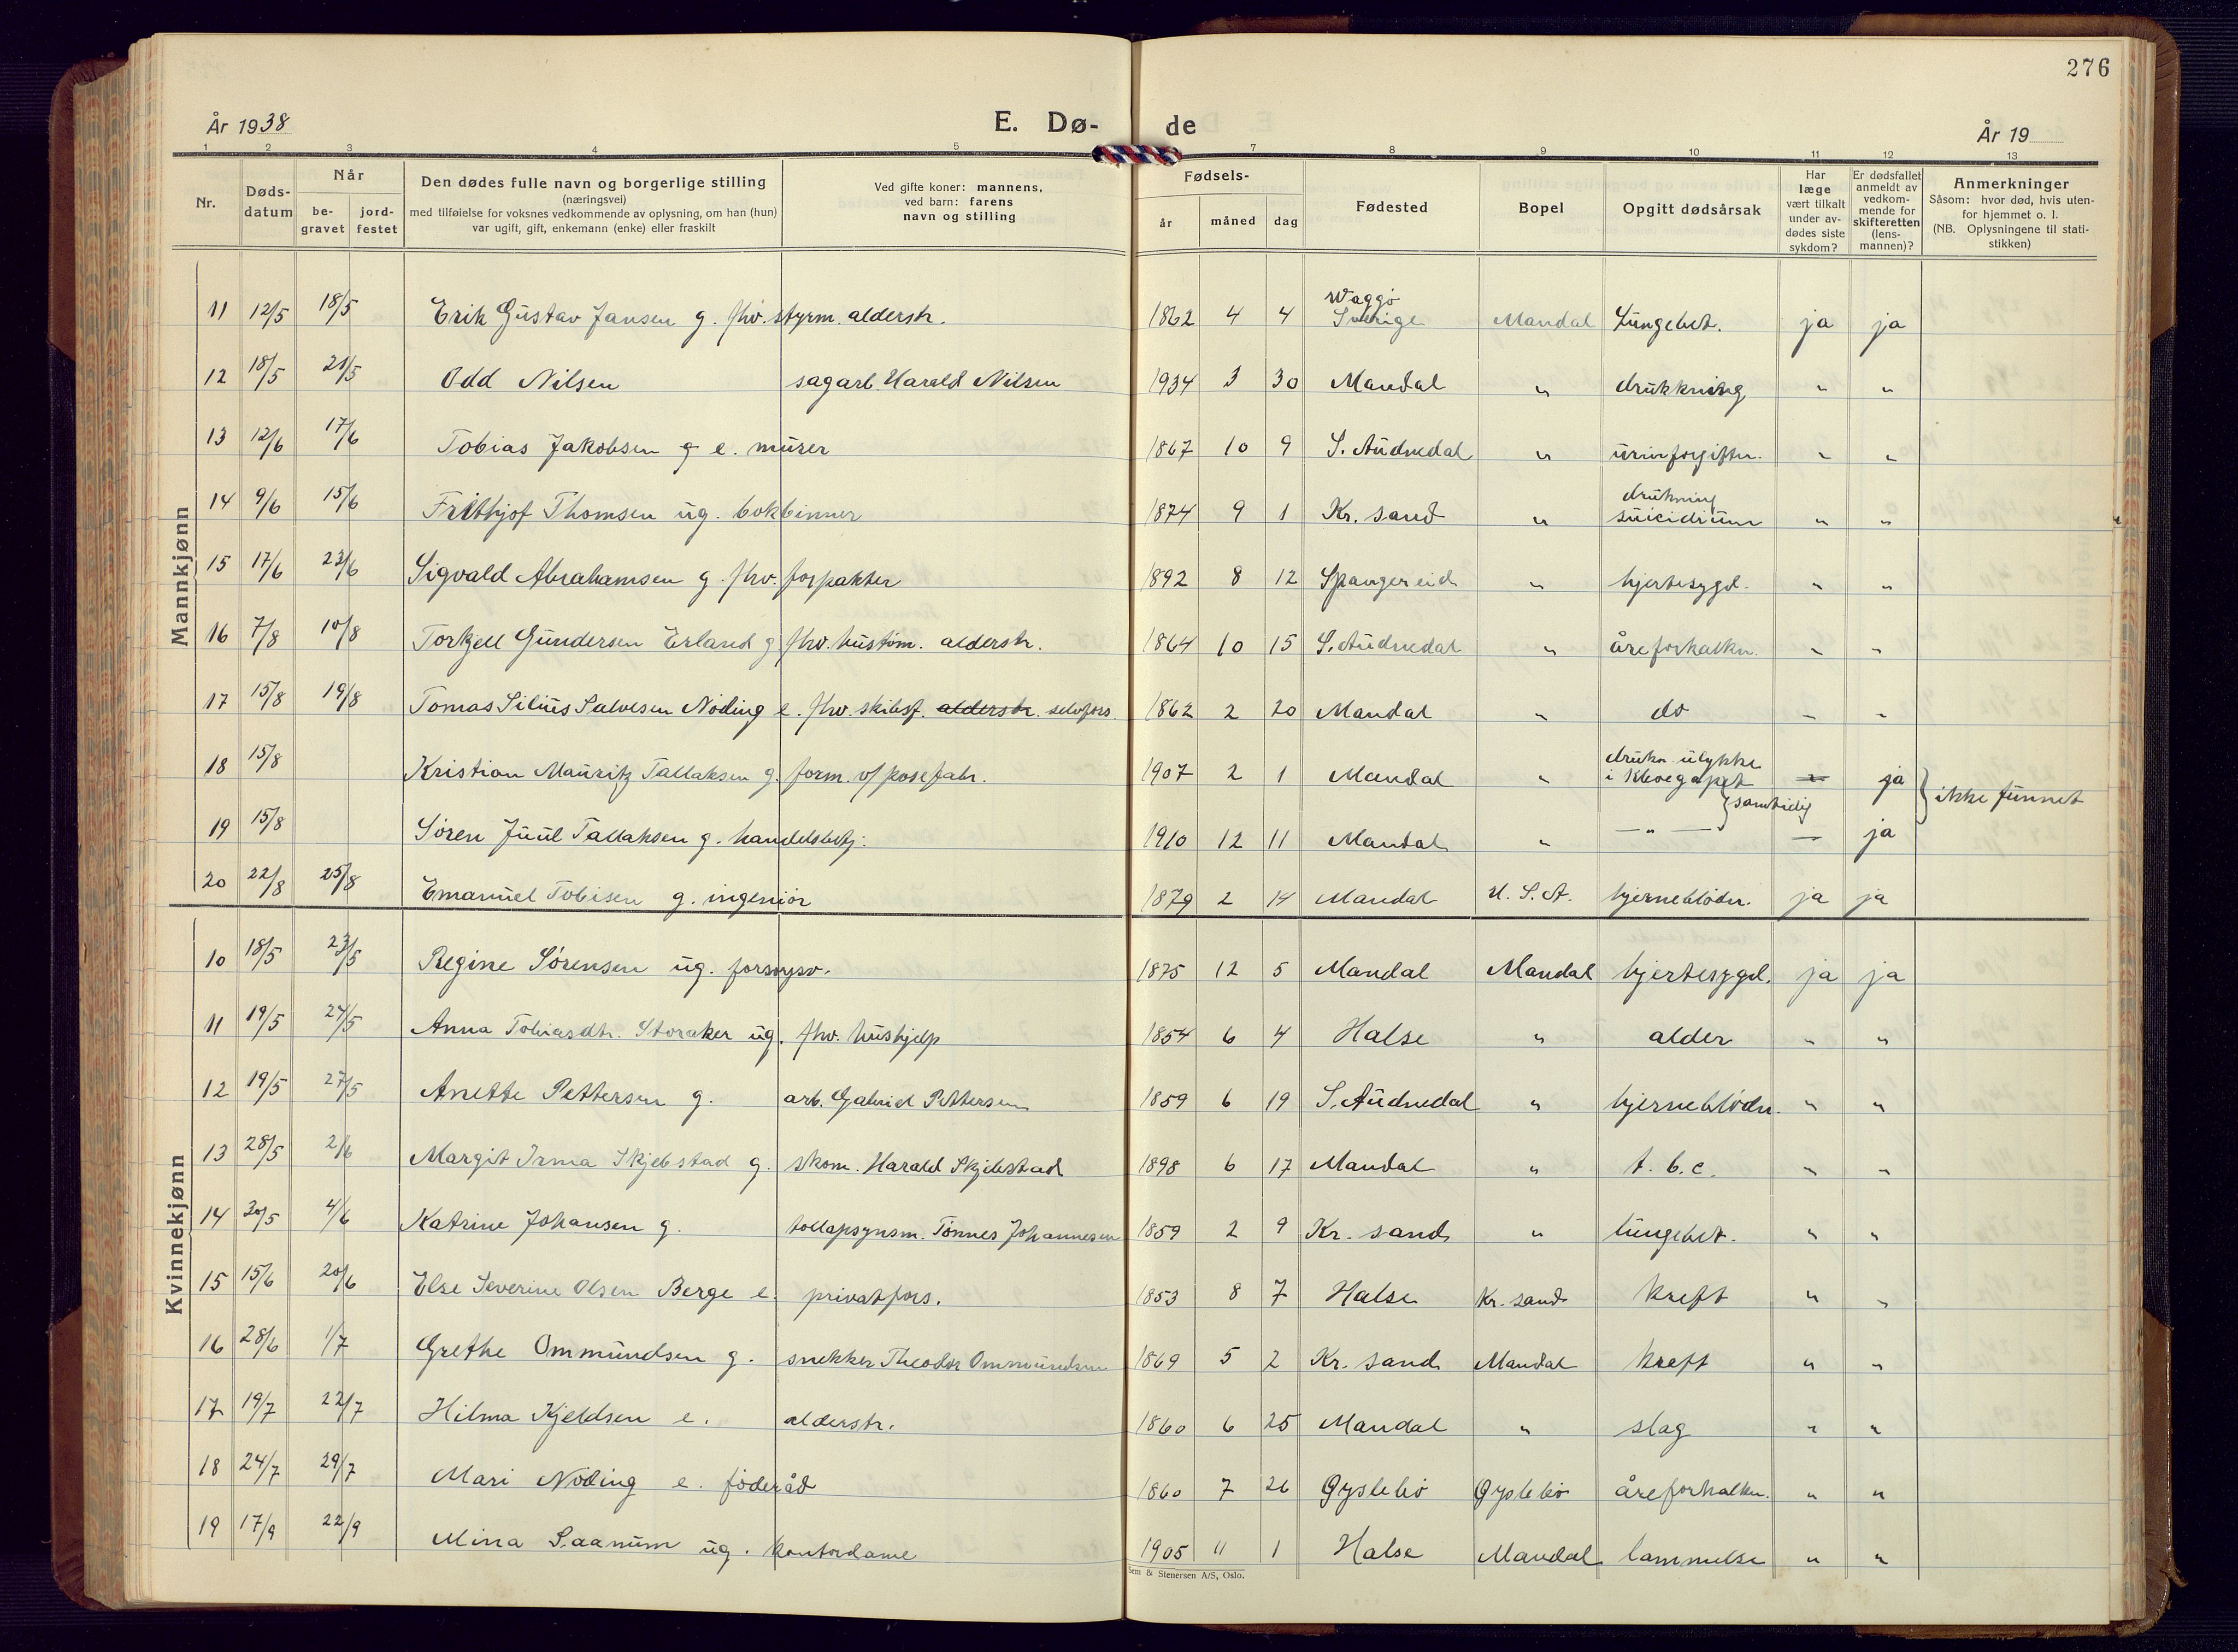 276
År 1938 E. Dø- de År 19
1 2 3 4 5 7 8 9 10 11 12 13
Nr. Døds-datum Når be-gravet jord-festet Den dødes fulle navn og borgerlige stilling (næringsvei) med tilføielse for voksnes vedkommende av oplysning, om han (hun) var ugift, gift, enkemann (enke) eller fraskilt Ved gifte koner: mannens, ved barn: farens navn og stilling Fødsels- år måned dag Fødested Bopel Opgitt dødsårsak Har læge vært tilkalt under av-dødes siste sykdom? Er dødsfallet anmeldt av vedkom-mende for skifteretten (lens-mannen)? Anmerkninger Såsom: hvor død, hvis uten-for hjemmet o. l. (NB. Oplysningene til stati-stikken)
Mannkjønn
11 12/5 18/5 Erik Gustav Jansen g. fhv. styrm. alderstr. 1862 4 4 Waggö Sverige Mandal Lungebet. ja ja
12 18/5 21/5 Odd Nilsen sagarb. Harald Nilsen 1934 3 30 Mandal " drukkning " "
13 12/6 17/6 Tobias Jakobsen g e. murer 1867 10 9 S. Audnedal " urinforgiftn. " "
14 9/6 15/6 Frithjof Thomsen ug. bokbinner 1874 9 1 Kr. sand " drukning suicidium " "
15 17/6 23/6 Sigvald Abrahamsen g. fhv. forpakter 1892 8 12 Spangereid " hjertesygd. " "
16 7/8 10/8 Torkjell Gundersen Erland g fhv. hustöm. alderstr. 1864 10 15 S. Audnedal " åreforkalkn. " "
17 15/8 19/8 Tomas Silius Salvesen Nöding e. fhv. skibsf. alderstr. selvfors. 1862 2 20 Mandal " do " "
18 15/8 Kristian Mauritz Tallaksen g. form. v/ posefabr. 1907 2 1 Mandal " drukn. ulykke i Klevegapet — ja } ikke funnet
} samtidig
19 15/8 Sören Juul Tallaksen g. handelsbetj. 1910 12 11 Mandal " — " — — ja
20 22/8 25/8 Emanuel Tobisen g. ingeniör 1879 2 14 Mandal U. S. A. hjerneblödn. ja ja
Kvinnekjønn
10 18/5 23/5 Regine Sörensen ug. forsorgsv. 1875 12 5 Mandal Mandal hjertesygd. ja ja
11 19/5 24/5 Anna Tobiasdtr. Storaker ug. fhv. hushjelp 1854 6 4 Halse " alder " "
12 19/5 27/5 Anette Pettersen g. arb. Gabriel Pettersen 1859 6 19 S. Audnedal " hjerneblödn. " "
13 28/5 2/6 Margit Irma Skjebstad g. skom. Harald Skjebstad 1898 6 17 Mandal " t. b. c. " "
14 20/5 4/6 Katrine Johansen g. tollopsynsm. Tönnes Johannesen 1859 2 9 Kr. sand " lungebet. " "
15 15/6 20/6 Else Severine Olsen Berge e. privatfors. 1853 8 7 Halse Kr. sand kreft " "
16 28/6 1/7 Grethe Ommundsen g. snekker Theodor Ommundsen 1869 5 2 Kr. sand Mandal kreft " "
17 19/7 22/7 Hilma Kjeldsen e. alderstr. 1860 6 25 Mandal " slag " "
18 24/7 29/7 Mari Nöding e. föderåd 1860 7 26 Gyslebö Gyslebö åreforkalkn. " "
19 17/9 22/9 Mina Saanum ug. kontordame 1905 11 1 Halse Mandal lammelse " "
Sem & Stenersen A/S, Oslo.